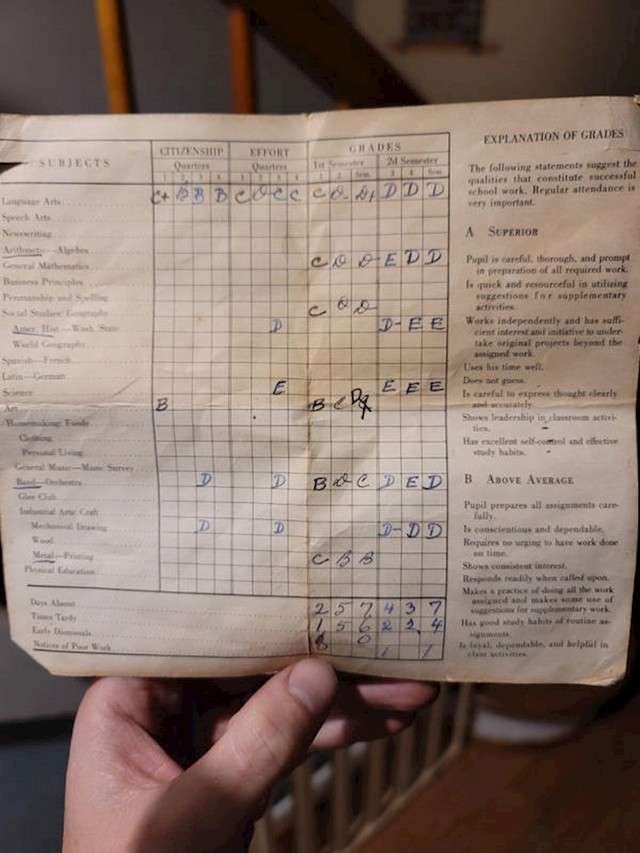 CITIZENSHIP EFFORT GRADES
SUBJECTS Quarters Quarters 1st Semester 2d Semester
1 2 3 4 1 2 3 4 1 2 Sem. 3 4 Sem.
Language Arts C+ B B B C D C C C D- D+ D D D
Speech Arts
Newswriting
Arithmetic—Algebra
General Mathematics C D D E D D
Business Principles
Penmanship and Spelling
Social Studies: Geography C D D
Amer. Hist.—Wash. State D D- E E
World Geography
Spanish—French
Latin—German
Science E E E E
Art B B C
Homemaking: Foods
Clothing
Personal Living
General Music—Music Survey
Band—Orchestra D D B D C D E D
Glee Club
Industrial Arts: Craft
Mechanical Drawing D D D- D D
Wood
Metal—Printing C B B
Physical Education
Days Absent 2 5 7 4 3 7
Times Tardy 1 5 6 2 2 4
Early Dismissals 0
Notices of Poor Work 1 1
EXPLANATION OF GRADES
The following statements suggest the
qualities that constitute successful
school work. Regular attendance is
very important.
A SUPERIOR
Pupil is careful, thorough, and prompt
in preparation of all required work.
Is quick and resourceful in utilizing
suggestions for supplementary
activities.
Works independently and has suffi-
cient interest and initiative to under-
take original projects beyond the
assigned work.
Uses his time well.
Does not guess.
Is careful to express thought clearly
and accurately.
Shows leadership in classroom activi-
ties.
Has excellent self-control and effective
study habits.
B ABOVE AVERAGE
Pupil prepares all assignments care-
fully.
Is conscientious and dependable.
Requires no urging to have work done
on time.
Shows consistent interest.
Responds readily when called upon.
Makes a practice of doing all the work
assigned and makes some use of
suggestions for supplementary work.
Has good study habits of routine as-
signments.
Is loyal, dependable, and helpful in
class activities.